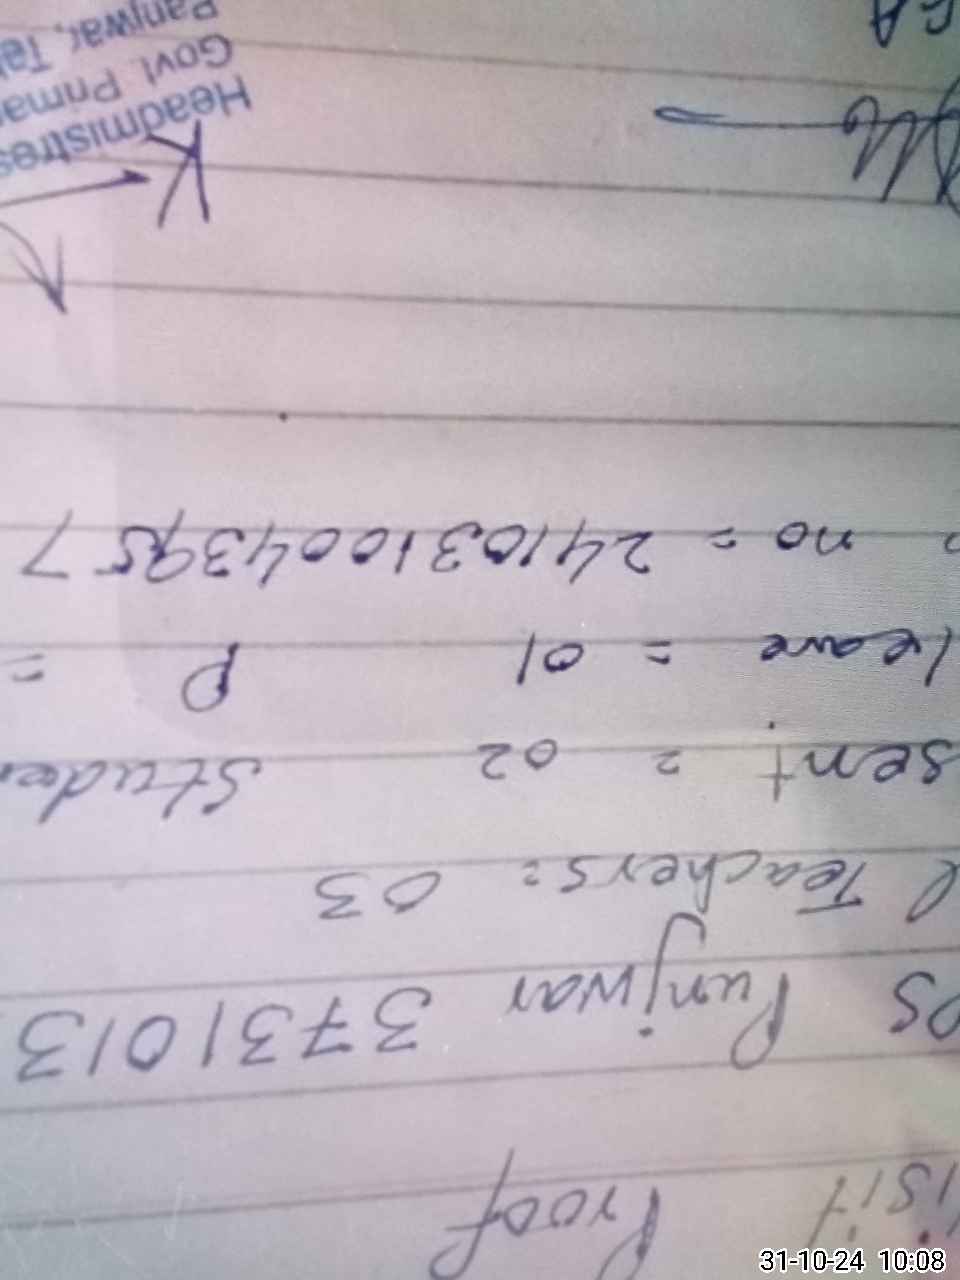 isit Proof
PS Punjwar 3731013
l Teachers: 03
sent = 02 Studen
leave = 01 P =
no = 2410310043957
Headmistres
Govt. Primar
Panjwar, Teh
31-10-24 10:08